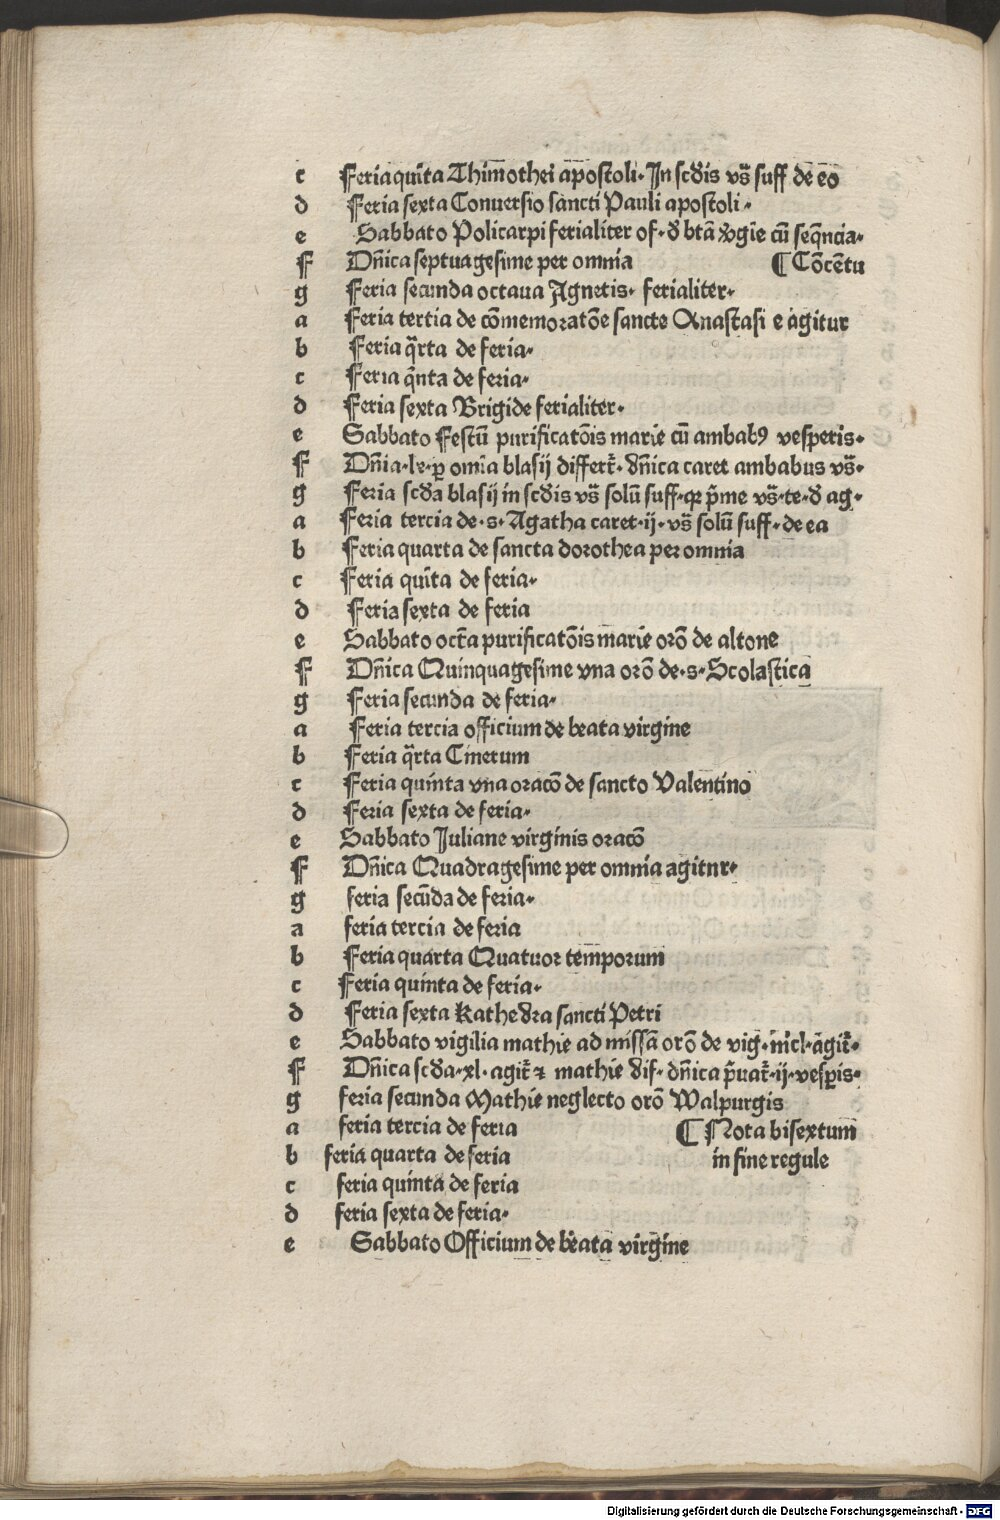 c Feria quīta Thimothei apostoli. In scdis vs̄ suff de eo
d Feria sexta Conuersio sancti Pauli apostoli.
e Sabbato Policarpi ferialiter of. d btā xgīe cū seq̄ncia.
F Dn̄ica septuagesime per omnia ¶ Cōcētu
g Feria secunda octaua Agnetis. ferialiter.
a Feria tertia de cōmemoratōe sancte Anastasi e agitur
b Feria q̄rta de feria.
c Feria q̄nta de feria.
d Feria sexta Brigide ferialiter.
e Sabbato Festū purificatōis marie cū ambabꝯ vesperis.
F Dn̄ia. le. ꝑ omīa blasij differt̄. dn̄ica caret ambabus vs̄.
g Feria scda blasij in scdis vs̄ solū suff. qꝛ p̄me vs̄. te. d ag.
a Feria tercia de. s. Agatha caret. ij. vs̄ solū suff. de ea
b Feria quarta de sancta dorothea per omnia
c Feria quīta de feria.
d Feria sexta de feria
e Sabbato oct̄a purificatōis marie orō de altone
F Dn̄ica Quinquagesime vna orō de. s. Scolastica
g Feria secunda de feria.
a Feria tercia officium de beata virgine
b Feria q̄rta Cinerum
c Feria quinta vna oracō de sancto Valentino
d Feria sexta de feria.
e Sabbato Juliane virginis oracō
F Dn̄ica Quadragesime per omnia agitnr.
g feria secūda de feria.
a feria tercia de feria
b Feria quarta Quatuor temporum
c Feria quinta de feria.
d Feria sexta Kathedra sancti Petri
e Sabbato vigilia mathie ad missā orō de vig. nīcl. āgit̄.
F Dn̄ica scda. xl. agit̄ ⁊ mathie dif. dn̄ica p̄uat̄. ij. vesp̄is.
g feria secunda Mathie neglecto orō Walpurgis
a feria tercia de feria ¶ Nota bisextum
b feria quarta de feria in fine regule
c feria quinta de feria
d feria sexta de feria.
e Sabbato Officium de beata virgine
Digitalisierung gefördert durch die Deutsche Forschungsgemeinschaft - DFG